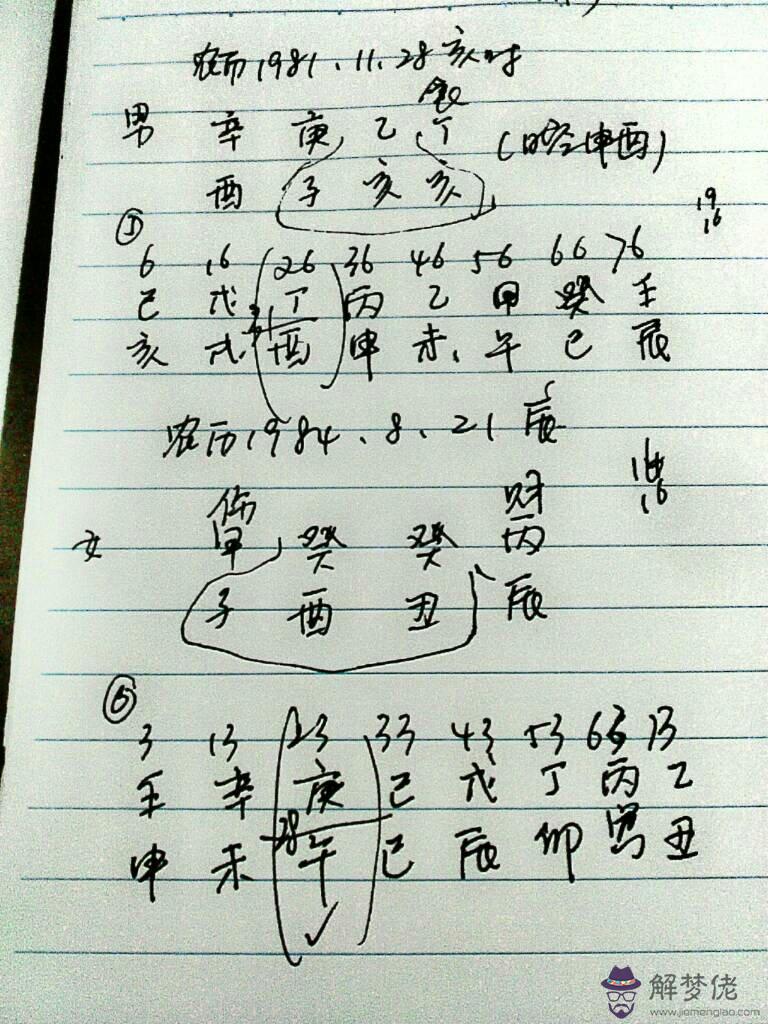 农历1981.11.28亥时
食
男 辛 庚 乙 丁 (时空申酉)
酉 子 亥 亥
19
16
①
6 16 26 36 46 56 66 76
己 戊 丁 丙 乙 甲 癸 壬
亥 戌 酉 申 未、午 巳 辰
农历1984.8.21辰
16
伤 财
女 甲 癸 癸 丙
子 酉 丑 辰
3 13 23 33 43 53 63 73
壬 辛 庚 己 戊 丁 丙 乙
申 未 28 午 巳 辰 卯 寅 丑
解梦佬
www.jiemenglao.com